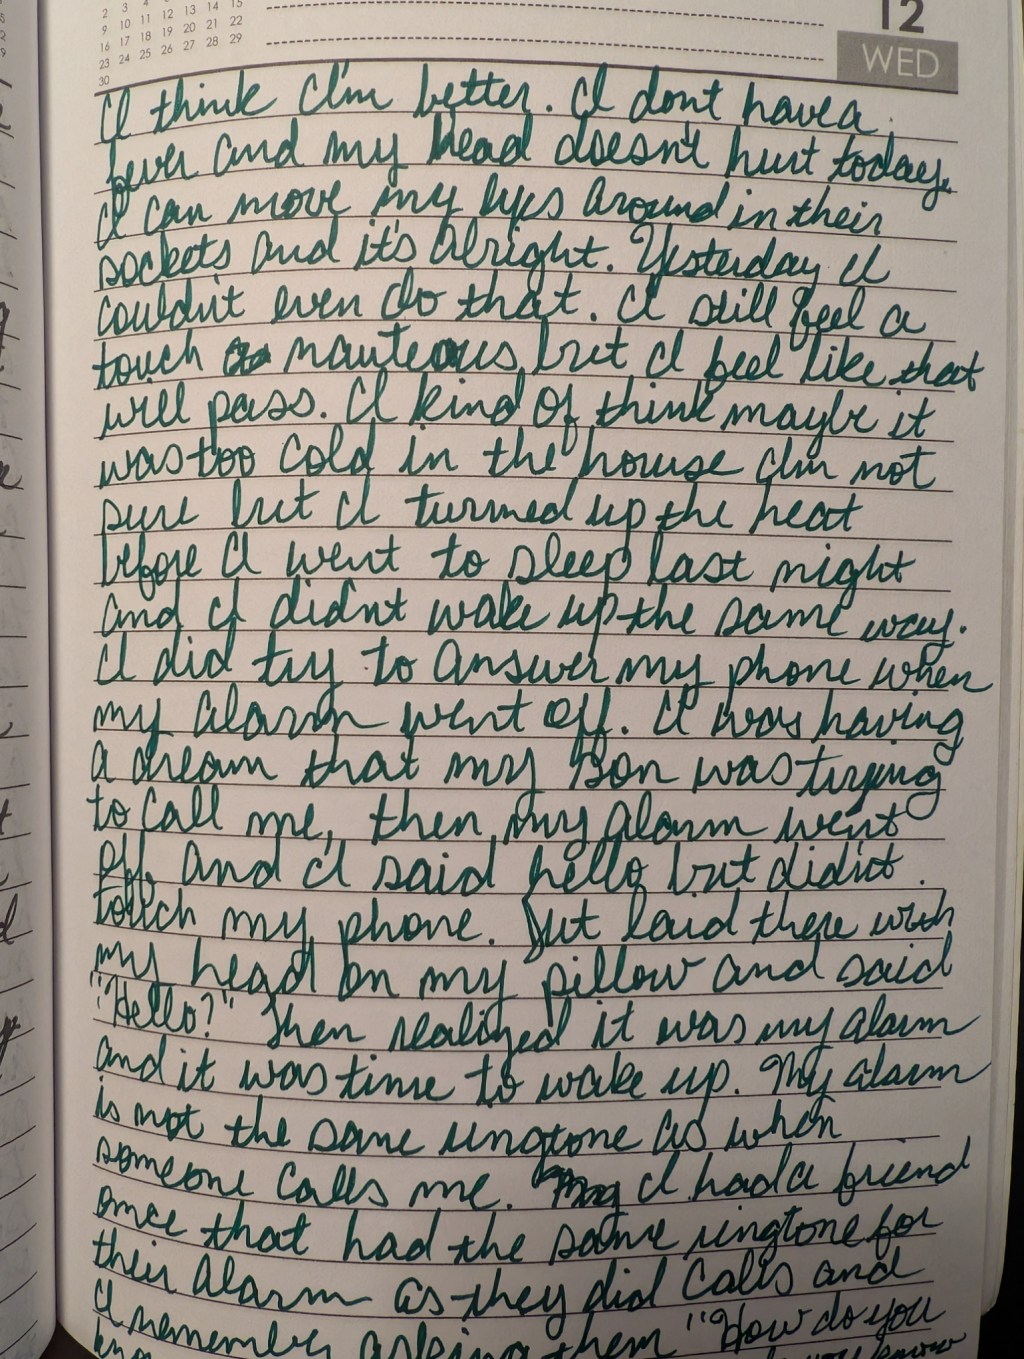 2 3 4
9 10 11 12 13 14 15
16 17 18 19 20 21 22
23 24 25 26 27 28 29
30
12
WED
I think I'm better. I dont have a
fever and my head doesn't hurt today.
I can move my eyes around in their
sockets and it's alright. Yesterday I
couldn't even do that. I still feel a
touch nauteous, but I feel like that
will pass. I kind of think maybe it
was too cold in the house I'm not
sure but I turned up the heat
before I went to sleep last night
and I didn't wake up the same way.
I did try to answer my phone when
my alarm went off. I was having
a dream that my son was trying
to call me, then my alarm went
off, and I said hello but didn't
touch my phone. Just laid there with
my head on my pillow and said
"Hello?" Then realized it was my alarm
and it was time to wake up. My alarm
is not the same ringtone as when
someone calls me. I had a friend
once that had the same ringtone for
their alarm as they did calls and
I remember asking them "How do you
you know